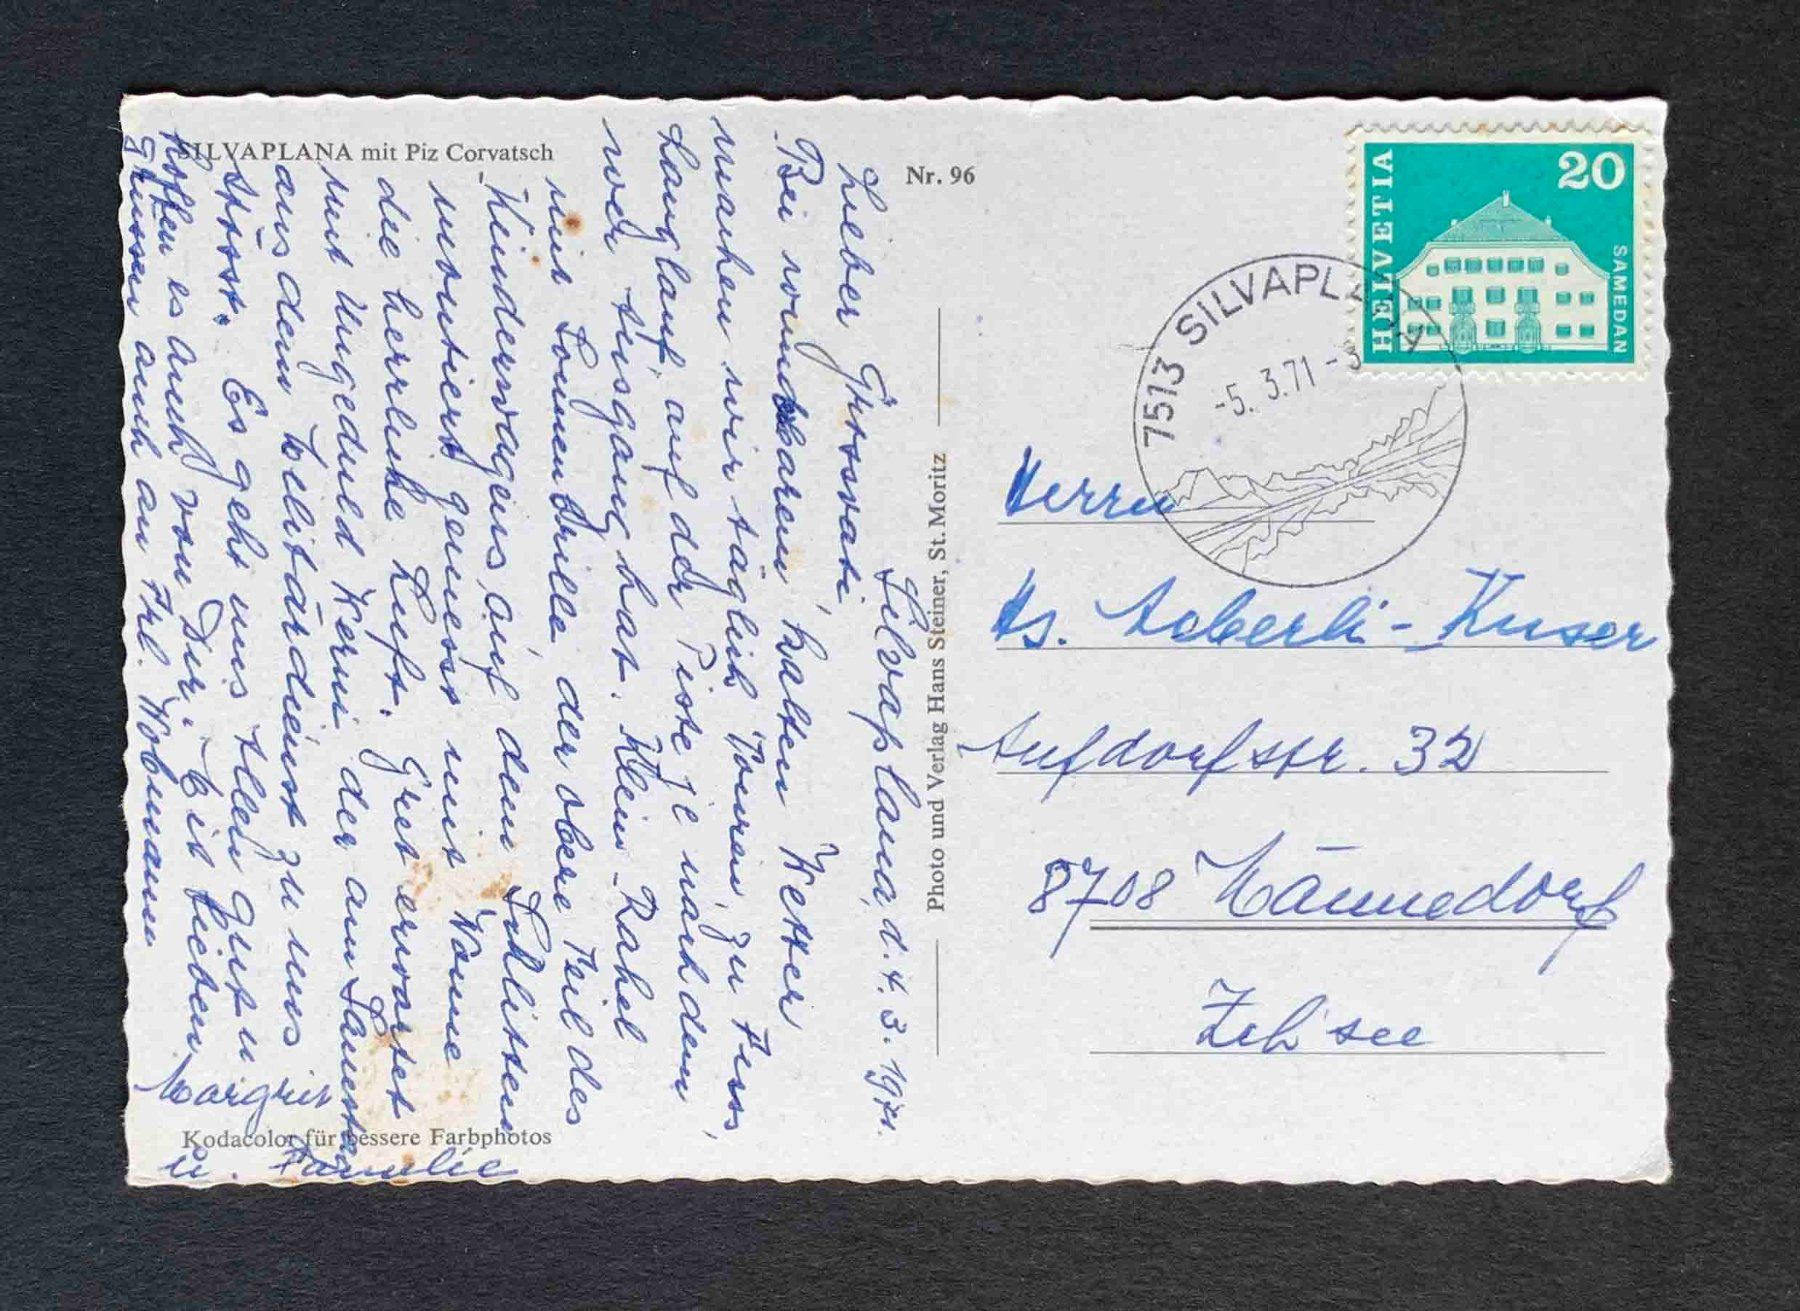 SILVAPLANA mit Piz Corvatsch
Nr. 96
HELVETIA
20
SAMEDAN
7513 SILVAPLANA
-5. 3.71 -
Silvaplana, d. 4. 3. 1971.
Lieber Grossvati,
Bei wunderbarem, kalten Wetter
machen wir täglich Touren, zu Fuss,
Langlauf auf der Piste je nach dem
wer Ausgang hat. Klein-Rahel
mit Sonnenbrille der obere Teil des
Kinderwagens, auf dem Schlitten
montiert geniesst mit Wonne
die herrliche Luft. Gret erwartet
mit Ungeduld Werni der am Samstag
aus dem Militärdienst zu uns
stösst. Es geht uns allen gut u
hoffen es auch von Dir. Mit lieben
Grüssen auch an Frl. Wobmann
Margrit
u. Familie
Kodacolor für bessere Farbphotos
Photo und Verlag Hans Steiner, St. Moritz
Herrn
Hs. Aeberli-Kuser
Aufdorfstr. 32
8708 Männedorf
Zch'see